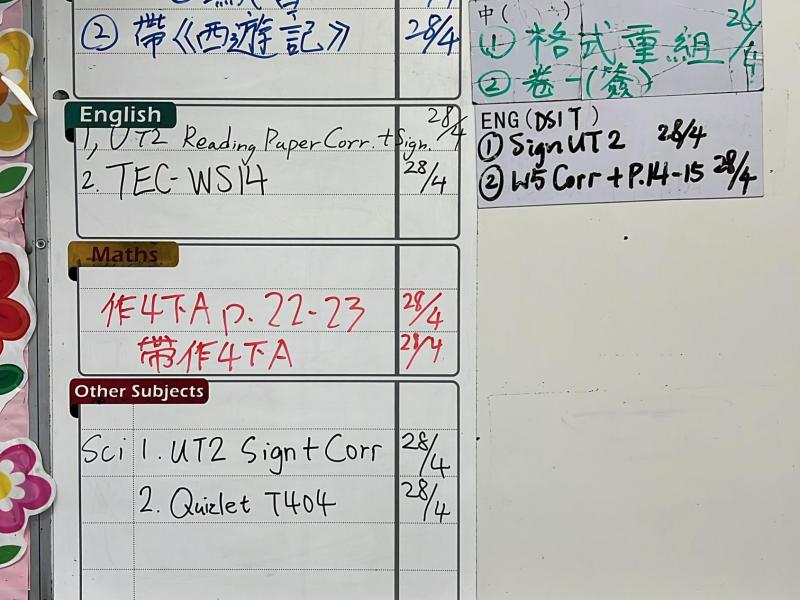 ② 帶《西遊記》 28/4
English
1, UT2 Reading Paper Corr. + Sign. 28/4
2. TEC-WS14 28/4
Maths
作4下A p. 22-23 28/4
帶作4下A 28/4
Other Subjects
Sci 1. UT2 Sign + Corr 28/4
2. Quizlet T404 28/4
中( )
① 格式重組 28/4
② 卷一(簽)
ENG (DSIT)
① Sign UT2 28/4
② W5 Corr + P.14-15 28/4